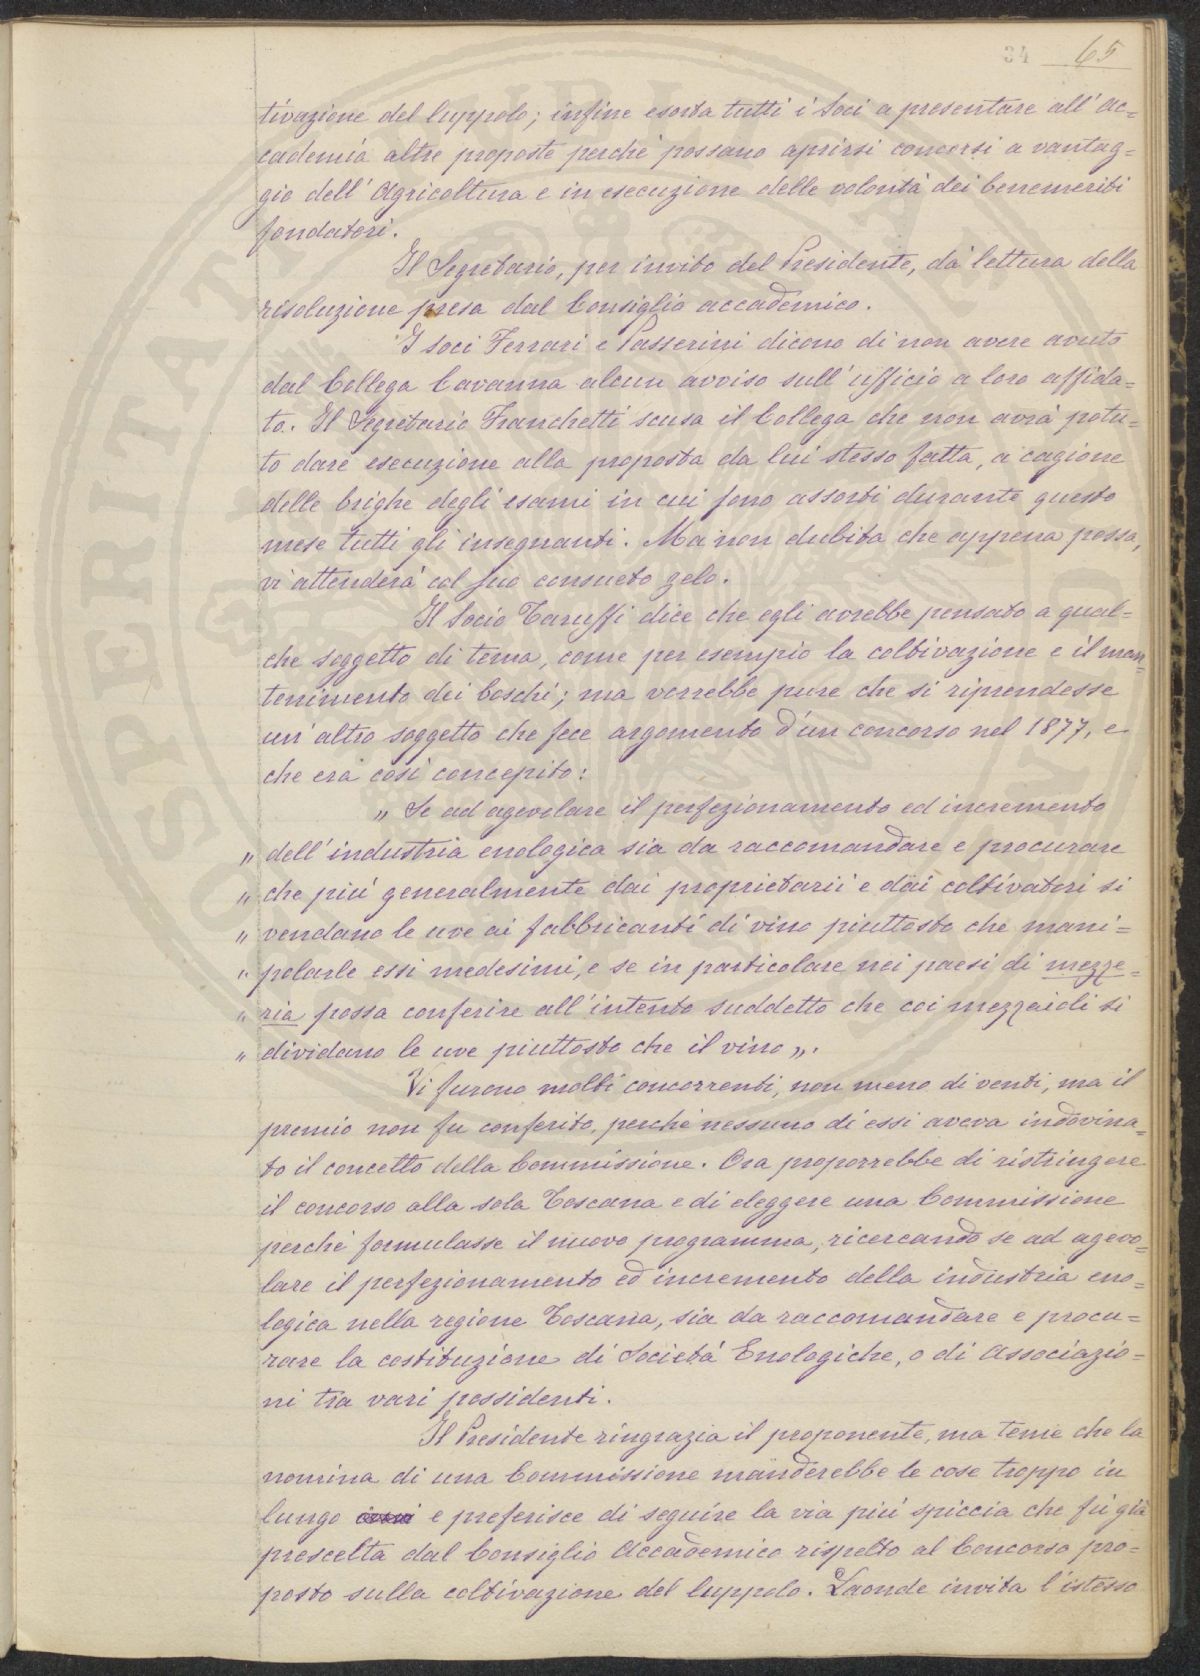 34 65
tivazione del luppolo; infine esorta tutti i Soci a presentare all'Ac=
cademia altre proposte perchè possano aprirsi concorsi a vantag=
gio dell'Agricoltura e in esecuzione delle volontà dei benemeriti
fondatori.
Il Segretario, per invito del Presidente, dà lettura della
risoluzione presa dal Consiglio accademico.
I soci Ferrari e Passerini dicono di non avere avuto
dal Collega Cavanna alcun avviso sull'ufficio a loro affida=
to. Il Segretario Franchetti scusa il Collega che non avrà potu=
to dare esecuzione alla proposta da lui stesso fatta, a cagione
delle brighe degli esami in cui sono assorti durante questo
mese tutti gli insegnanti. Ma non dubita che appena possa,
vi attenderà col suo consueto zelo.
Il Socio Taruffi dice che egli avrebbe pensato a qual=
che soggetto di tema, come per esempio la coltivazione e il man=
tenimento dei boschi; ma vorrebbe pure che si riprendesse
un'altro soggetto che fece argomento d'un concorso nel 1877, e
che era così concepito:
„ Se ad agevolare il perfezionamento ed incremento
„ dell'industria enologica sia da raccomandare e procurare
„ che più generalmente dai proprietarii e dai coltivatori si
„ vendano le uve ai fabbricanti di vino piuttosto che mani=
„ polarle essi medesimi, e se in particolare nei paesi di mezze=
„ ria possa conferire all'intento suddetto che coi mezzaioli si
„ dividano le uve piuttosto che il vino „.
Vi furono molti concorrenti, non meno di venti, ma il
premio non fu conferito, perchè nessuno di essi aveva indovina=
to il concetto della Commissione. Ora proporrebbe di ristringere
il concorso alla sola Toscana e di eleggere una Commissione
perchè formulasse il nuovo programma, ricercando se ad agevo=
lare il perfezionamento ed incremento della industria eno=
logica nella regione Toscana, sia da raccomandare e procu=
rare la costituzione di Società Enologiche, o di Associazio=
ni tra vari possidenti.
Il Presidente ringrazia il proponente, ma teme che la
nomina di una Commissione manderebbe le cose troppo in
lungo e preferisce di seguire la via più spiccia che fu già
prescelta dal Consiglio Accademico rispetto al Concorso pro=
posto sulla coltivazione del luppolo. Laonde invita l'istesso
SPERITATI